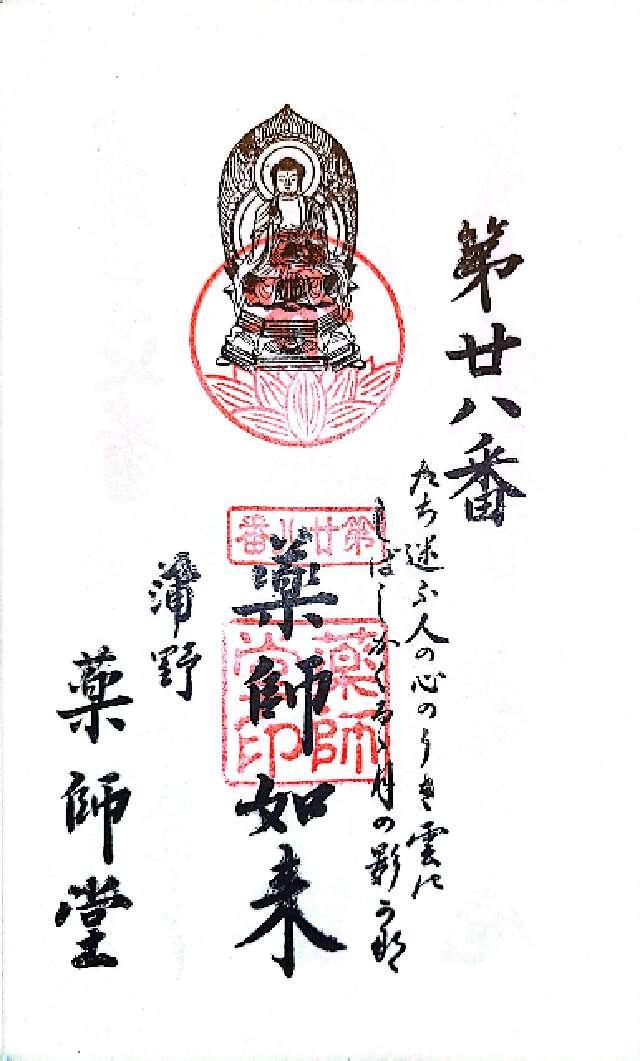 第廿八番
たち迷ふ人の心のうき雲に
しばしかくるゝ月の影かな
第廿八番
薬師如来
薬師堂印
蒲野
薬師堂